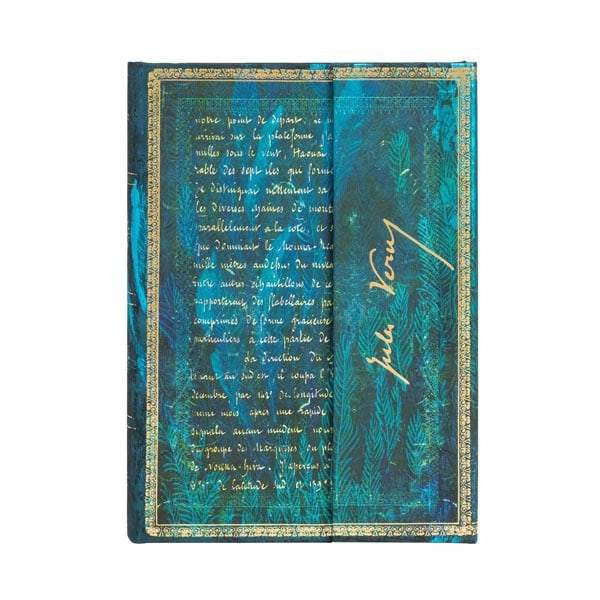 notre point de départ. Le n
arrivai sur la plateforme j'a
milles sous le vent, Haouai
rable des sept iles que forme
Je distinguai nettement sa
les diverses chaines de mont
parallèlement à la cote, et s
que dominant le Mouna-Rea
mille mètres au dessus du nivea
Entre autres échantillons de ce
rapportèrent des flabellaires pa
comprimés de forme gracieuse
particuliers à cette partie de
La direction du
au sud est il coupa l'E
décembre par 142° de longitude
meme mois après une rapide
signala aucun incident nous
du groupe des Marquises
de Nouka-hiva. J'aperçus à
de latitude sud et 139°
Jules Verne